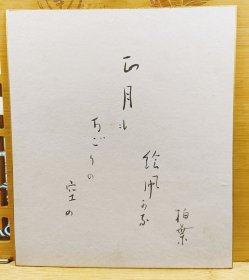 正月も
なごりの
空の
絵凧かな
柏葉